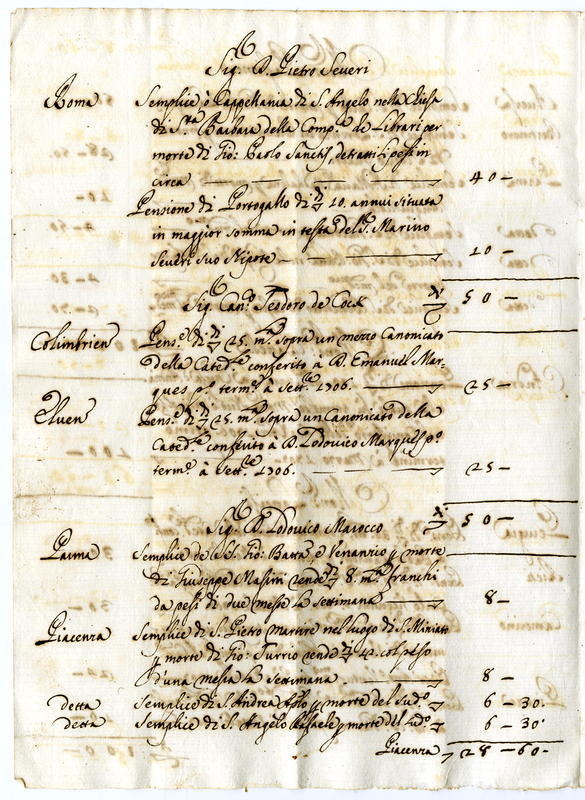 Sig. D. Pietro Severi
Roma Semplice ò Cappellania di S. Angelo nella Chiesa
di S.ta Barbara della Comp.a de Librari per
morte di Gio: Paolo Sanctis, detratti i pesi in
circa 40 -
Pensione di Portogallo di 10. annui situata
in maggior somma in testa del S. Marino
Severi suo Nipote 10 -
Sig. Can.o Teodoro de Cock 50 -
Colimbrien Pens.e di 25. m.ta sopra un mezzo Canonicato
della Cated.le conferito à D. Emanuel Mar-
ques p.o term.e à Sett.re 1706. 25 -
Elven Pens.e di 25. m.ta sopra un Canonicato della
Cated.le conferito à D. Lodovico Marques p.o
term.e à Sett.re 1706. 25 -
Sig. D. Lodovico Marocco 50 -
Parma Semplice de SS. Gio: Batta e Venanzio p morte
di Giuseppe Masini rende 8. m.ta franchi
da pesi di due messe la settimana 8 -
Piacenza Semplice di S. Pietro martire nel luogo di S. Miniato
p morte di Gio: Turrio rende 12. col peso
d'una messa la settimana. 8 -
detta Semplice di S. Andrea Aplo p morte del sud.o 6 - 30.
detta Semplice di S. Angelo Rafaele p morte del sud.o 6 - 30.
Piacenza 28 - 60.